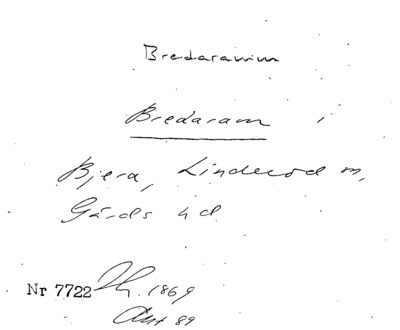 Bredaramm
Bredaram
Bjera, Linderöd sn,
Gärds hd
Nr 7722 1869
Ant 89